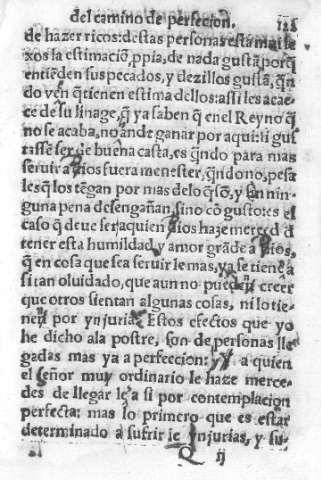 del camino de perfecion. 128
de hazer ricos: destas personas esta mas le
xos la estimaciõ, ppia, de nada gustã porq̃
entiẽden sus pecados, y dezillos gustã, q̃n
do vẽn q̃ tienen estima dellos: assi les acae
ce de su linage, q̃ ya saben q̃ en el Reyno q̃
no se acaba, no ãn de ganar por aqui: si gus
tassẽ ser de buena casta, es q̃ndo para mas
seruir a Dios fuera menester, q̃ndo no, pesa
les q̃ los tẽgan por mas de lo q̃ sõ, y sin nin-
guna pena desengañan, sino cõ gusto: es el
caso q̃ deue ser a quien Dios haze merced d̃
tener esta humildad y amor grãde a Dios,
q̃ en cosa que sea seruirle mas, ya se tiene a
si tan oluidado, que aun no pueden creer
que otros sientan algunas cosas, ni lo tie-
nen por ynjuria. Estos efectos que yo
he dicho ala postre, son de personas lle
gadas mas ya a perfecion: y a quien
el señor muy ordinario le haze merce-
des de llegarlẽ a si por contemplacion
perfecta: mas lo primero que es estar
determinado a sufrir ynjurias, y su-
Q ij